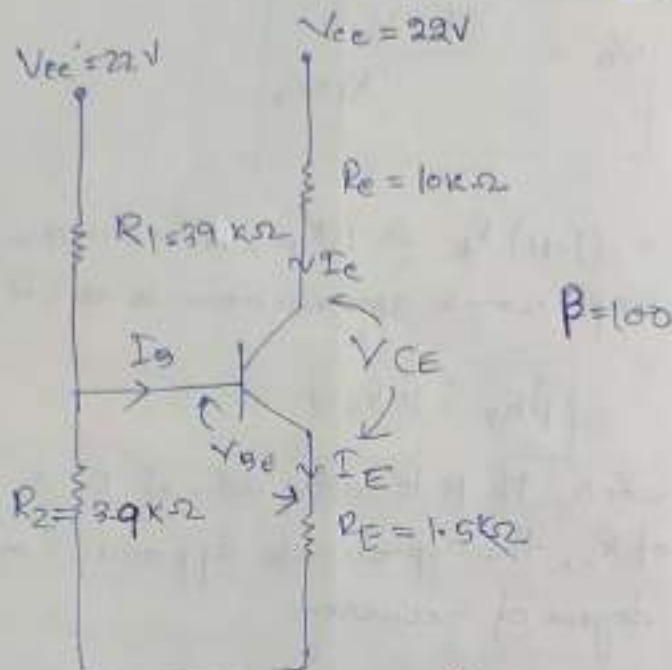 Vcc = 22V
Vcc = 22V
Rc = 10KΩ
R1 = 39 KΩ
Ic
β = 100
IB
VCE
VBE
IE
R2 = 3.9 KΩ
RE = 1.5KΩ